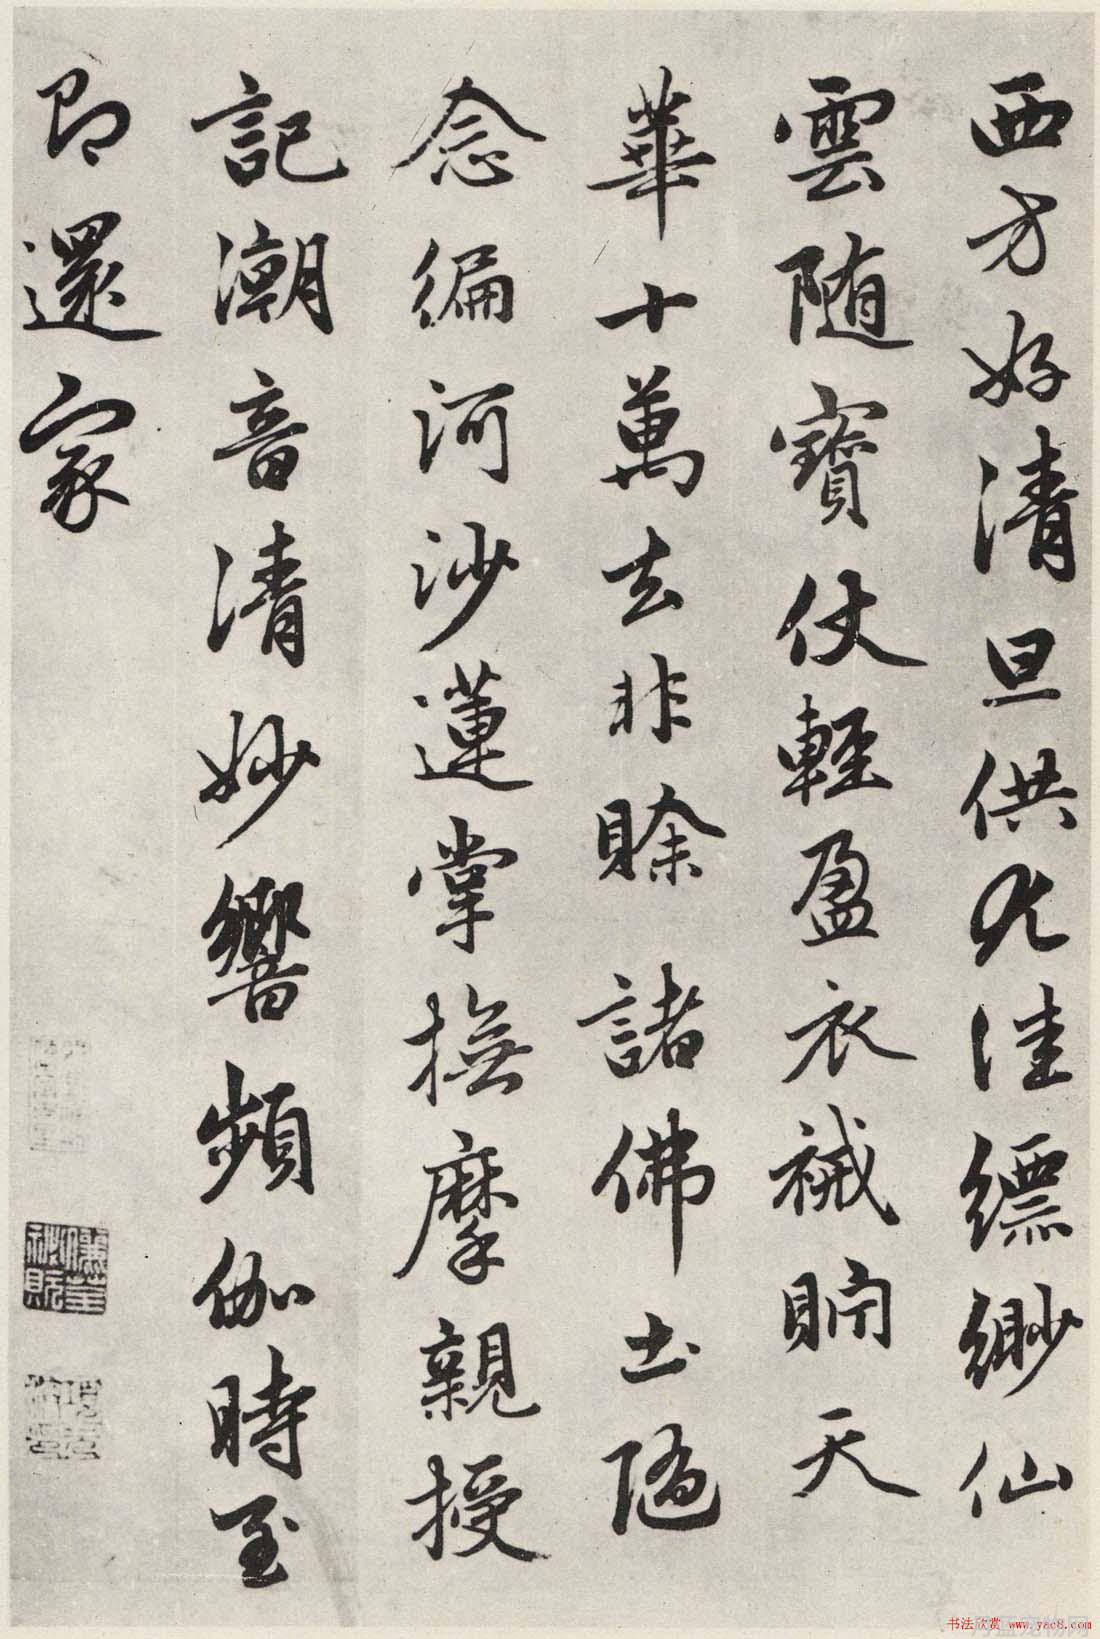 西方好清旦供尤佳縹緲仙
雲随寶仗輕盈衣裓貯天
華十萬去非賒諸佛土随
念編河沙蓮掌撫摩親授
記潮音清妙響頻伽時至
即還家
书法欣赏 www.yac8.com